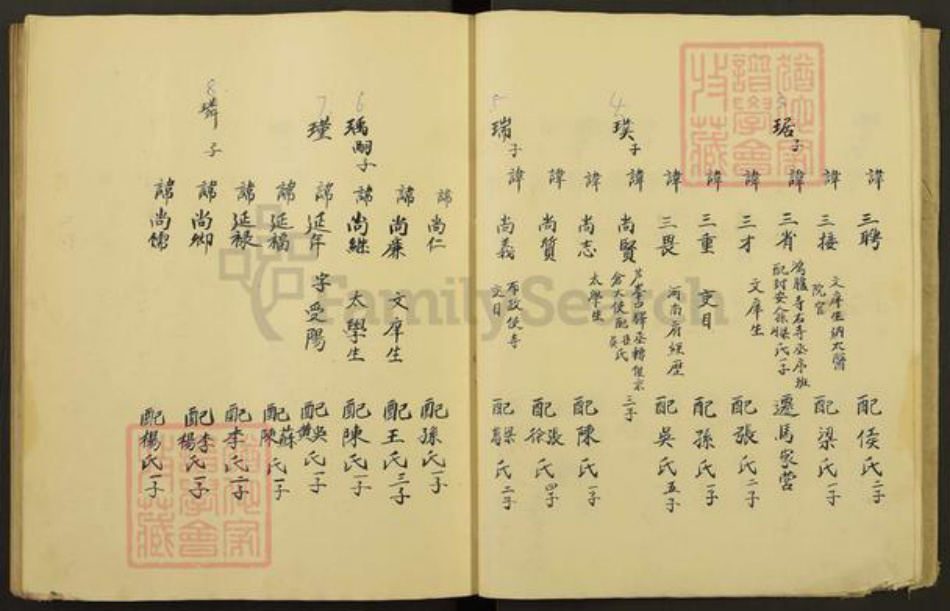 諱三聘 配侯氏二子
諱三接 文庠生納太醫院官 配梁氏一子
琚子 諱三省 鴻臚寺右寺丞序班 配封安人徐氏一子 遷馬家营
諱三才 文庠生 配張氏二子
諱三重 文目 配孫氏一子
諱三畏 河南府經歷 配吳氏五子
4
璞子 諱尚賢 驛丞轉 倉大使配吳氏 三子
諱尚志 太學生 配陳氏一子
諱尚質 配張徐氏四子
5
瑞子 諱尚義 布政使寺文目 配梁葛氏二子
諱尚仁 配孫氏二子
諱尚廉 文庠生 配王氏三子
6
瑀嗣子 諱尚継 太學生 配陳氏一子
7
瑾 諱延年 字受陽 配吳黄氏一子
諱延福 配蘇陳氏一子
諱延禄 配李氏二子
8
璘子 諱尚卿 配李楊氏一子
諱尚儒 配楊氏一子
FamilySearch